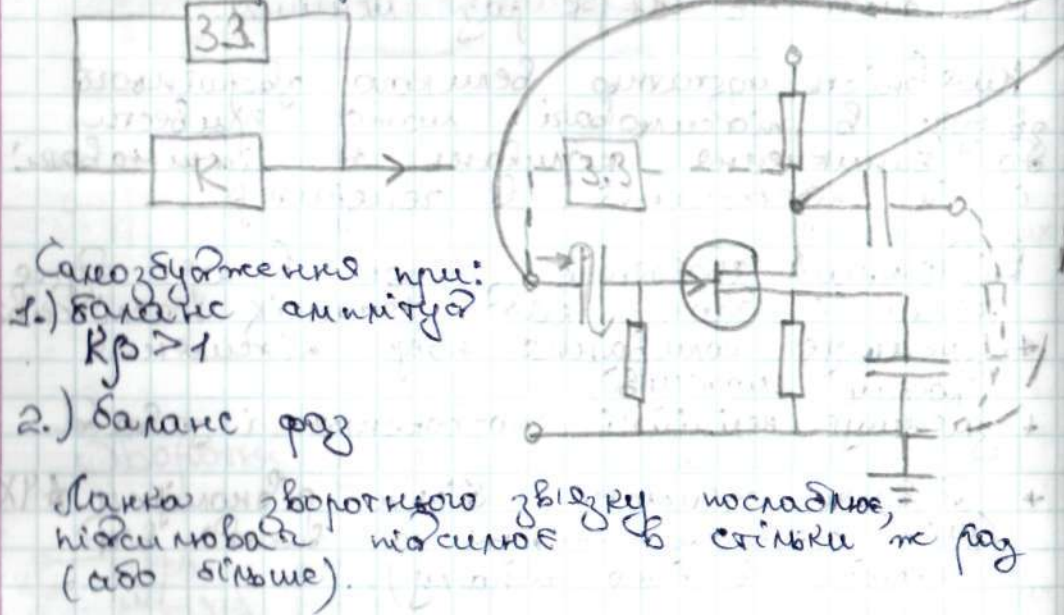 З.З.
K
З.З
Самозбудження при:
1.) баланс амплітуд
Kβ > 1
2.) баланс фаз
Ланка зворотнього звʼязку послаблює,
підсилювач підсилює в стільки ж раз
(або більше).